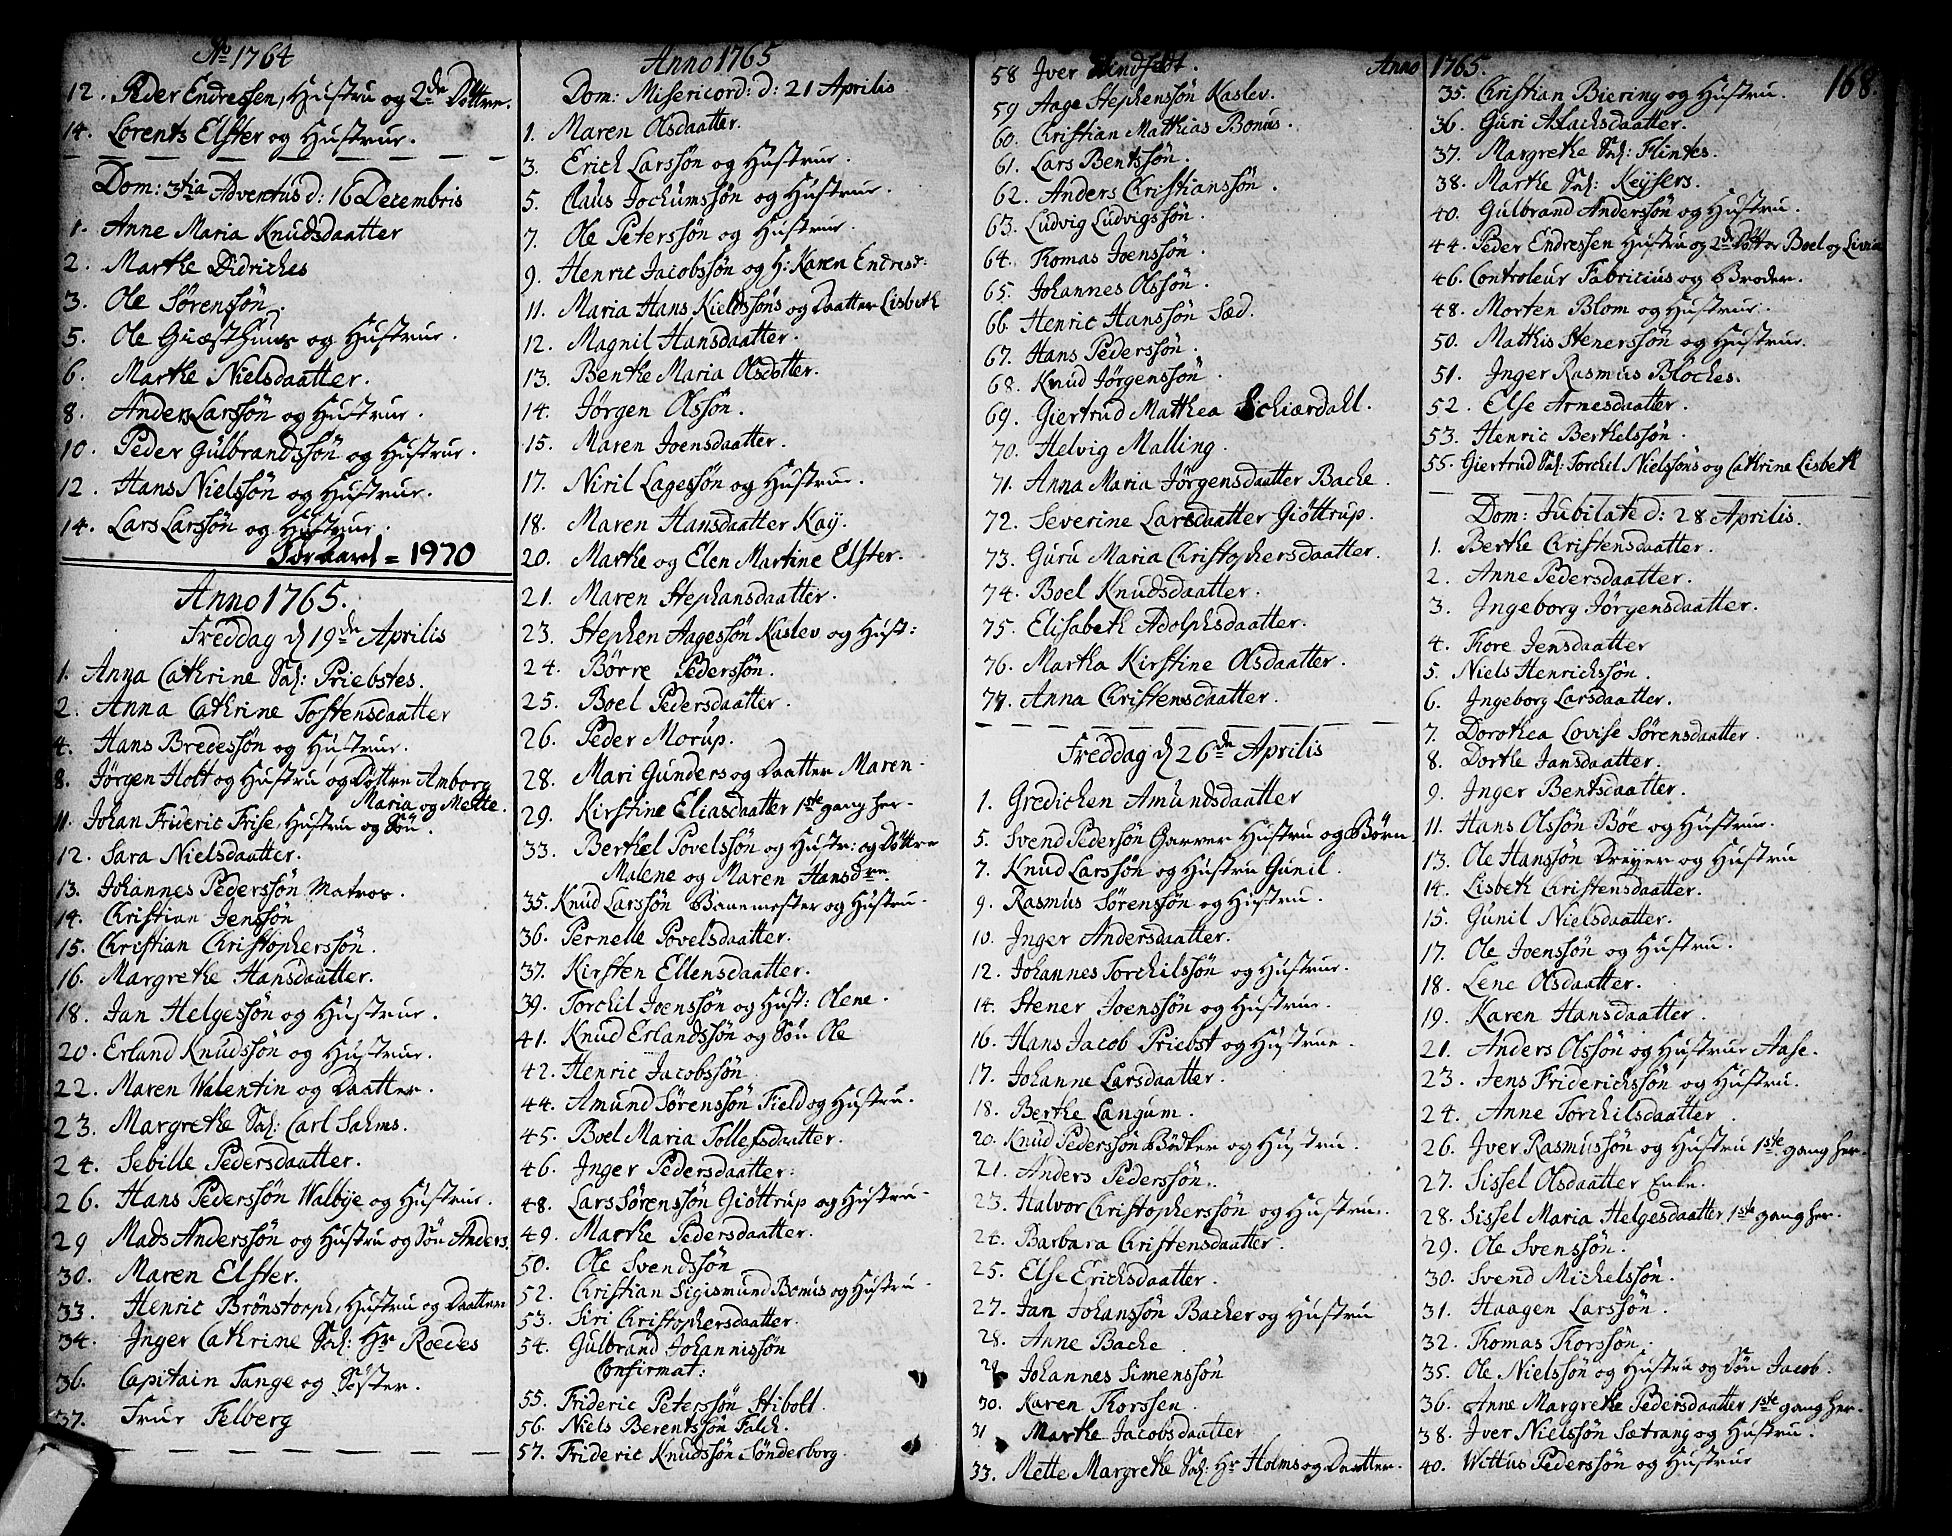 Ao 1764
12. Peder Endressen, Hustru og 2de Döttre.
14. Lorents Elster og Hustrue.
Dom: 3tia Adventus d: 16 Decembris
1. Anne Maria Knudsdaatter
2. Marthe Didriches
3. Ole Sörensön.
5. Ole Giæsthuus og Hustrue.
6. Marthe Nielsdaatter.
8. Anders Larssön og Hustrue.
10. Peder Gulbrandssön og Hustrue.
12. Hans Nielssön og Hustrue.
14. Lars Larssön og Hustrue.
For aaret = 1970
Anno 1765.
Freddag d 19de Aprilis
1. Anna Cathrine Sal: Priebstes.
2. Anna Cathrine Tostensdaatter
4. Hans Bredessön og Hustrue.
8. Jörgen Holt og Hustru og Döttre Amborg
Maria og Mette.
11. Johan Frideric Frise, Hustru og Sön.
12. Sara Nielsdaatter.
13. Johannes Pederssön Matros.
14. Christian Jenssön
15. Christian Christopherssön.
16. Margrethe Hansdaatter.
18. Jan Helgessön og Hustrue.
20. Erland Knudssön og Hustrue.
22. Maren Walentin og Daatter.
23. Margrethe Sal: Carl Sahms.
24. Sebille Pedersdaatter.
26. Hans Pederssön Walbye og Hustrue.
29 Mads Anderssön og Hustru og Sön Anders.
30. Maren Elster.
33. Henric Brönstorph, Hustru og Daatter
34. Inger Cathrine Sal: Hr Roedes
36. Capitain Tange og Söster.
37. Frue Felberg
Anno 1765
Dom: Misericord: d: 21 Aprilis
1. Maren Olsdaatter.
3. Erich Larssön og Hustrue.
5. Claus Jochumssön og Hustrue.
7. Ole Peterssön og Hustrue.
9. Henric Jacobssön og H: Karen Endresd:
11. Maria Hans Kieldssöns og Daatter Lisbeth
12. Magnil Hansdaatter.
13. Benthe Maria Olsdotter.
14. Jörgen Olssön.
15. Maren Joensdaatter.
17. Niril Lagessön og Hustrue.
18. Maren Hansdaatter Kaÿ.
20. Marthe og Elen Martine Elster.
21. Maren Stephansdaatter.
23. Stephen Aagessön Kaslev og Hust:
24. Börre Pederssön.
25. Boel Pedersdaatter.
26. Peder Morup.
28. Mari Gunders og Daatter Maren.
29. Kirstine Eliasdaatter 1ste gang her.
33. Berthel Povelssön og Hustr: og Döttre
Malene og Maren Hansdre
35. Knud Larssön Banemester og Hustru.
36. Pernelle Povelsdaatter.
37. Kirsten Ellensdaatter.
39. Torchil Joenssön og Hust: Olene.
41. Knud Erlandssön og Sön Ole
42. Henric Jacobssön
44. Amund Sörenssön Field og Hustru.
45. Boel Maria Tollefsdaatter.
46. Inger Pedersdaatter:
48. Lars Sörenssön Giöttrup og Hustru.
49. Marthe Pedersdaatter.
50. Ole Svendssön
52. Christian Sigismund Bonus og Hustru
53. Siri Christophersdaatter.
54. Gulbrand Johannissön
Confirmat:
55. Frideric Peterssön Stibolt.
56. Niels Berentssön Falch.
57. Frideric Knudssön Sönderborg.
58 Iver Lindstedt.
59 Aage Stephenssön Kaslev.
60. Christian Matthias Bonus.
61. Lars Bentssön.
62. Anders Christianssön.
63. Ludvig Ludvigssön.
64. Thomas Joenssön.
65. Johannes Olssön.
66. Henric Hanssön Sæd.
67. Hans Pederssön.
68. Knud Jörgenssön.
69. Giertrud Matthea Schiærdahl.
70. Helvig Malling.
71. Anna Maria Jörgensdaatter Bache.
72. Severine Larsdaatter Giöttrup.
73. Guru Maria Christophersdaatter.
74. Boel Knudsdaatter.
75. Elisabeth Adolphsdaatter.
76. Martha Kirstine Olsdaatter.
77. Anna Christensdaatter.
Freddag d 26de Aprilis
1. Gredichen Amundsdaatter
5. Svend Pedersön Garver Hustru og Börn
7. Knud Larssön og Hustru Gunil.
9. Rasmus Sörenssön og Hustru.
10. Inger Andersdaatter.
12. Johannes Torchilssön og Hustrue.
14. Stener Joenssön og Hustrue.
16. Hans Jacob Priebst og Hustrue.
17. Johanne Larsdaatter.
18. Berthe Langum.
20. Knud Pederssön Bödker og Hustru.
21. Anders Pederssön.
23. Halvor Christopherssön og Hustru.
24. Barbara Christensdaatter.
25. Else Erichsdaatter.
27. Jan Johanssön Bacher og Hustru
28. Anne Bache
29 Johannes Simenssön
30. Karen Thorssen.
31 Marthe Jacobsdaatter
33. Mette Margrethe Sal: Hr Holms og Daatter.
Anno 1765.
168.
35. Christian Biering og Hustru.
36. Guri Aslachsdaatter.
37. Margrethe Sal: Flintes.
38. Marthe Sal: Keÿsers.
40. Gulbrand Anderssön og Hustru.
44. Peder Endressen Hustru og 2de Döttre Boel og Livia
46. Controleur Fabricius og Broder.
48. Morten Blom og Hustrue.
50. Mathis Stenerssön og Hustrue.
51. Inger Rasmus Bloches.
52. Else Arnesdaatter.
53. Henric Berthelssön.
55. Giertrud Sal: Torchil Nielssöns og Cathrine Lisbeth
Dom: Jubilate d: 28 Aprilis.
1. Berthe Christensdaatter.
2. Anne Pedersdaatter.
3. Ingeborg Jörgensdaatter.
4. Thore Jensdaatter
5. Niels Henrichssön.
6. Ingeborg Larsdaatter.
7. Dorothea Lovise Sörensdaatter.
8. Dorthe Jansdaatter.
9. Inger Bentsdaatter.
11. Hans Olssön Böe og Hustrue.
13. Ole Hanssön Dreÿer og Hustru
14. Lisbeth Christensdaatter.
15. Gunil Nielsdaatter.
17. Ole Joenssön og Hustru.
18. Lene Olsdaatter.
19. Karen Hansdaatter.
21. Anders Olssön og Hustrue Aase.
23. Jens Friderichssön og Hustru.
24. Anne Torchilsdaatter
26. Iver Rasmussön og Hustru 1ste gang her.
27. Sissel Olsdaatter Enke.
28. Sissel Maria Helgesdaatter 1ste gang her.
29. Ole Svenssön.
30. Svend Michelssön.
31. Haagen Larssön.
32. Thomas Thorssön.
35. Ole Nielssön og Hustru og Sön Jacob.
36. Anne Margrethe Pedersdaatter 1ste gang her.
38. Iver Nielssön Sætrang og Hustru.
40. Wittus Pederssön og Hustrue